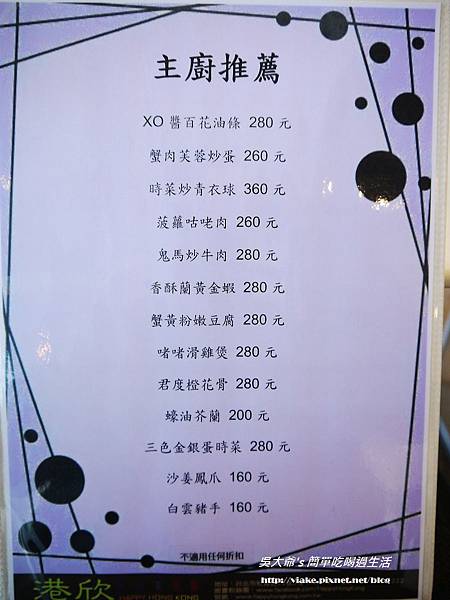 主廚推薦
XO 醬百花油條 280 元
蟹肉芙蓉炒蛋 260 元
時菜炒青衣球 360 元
菠蘿咕咾肉 260 元
鬼馬炒牛肉 280 元
香酥蘭黃金蝦 280 元
蟹黃粉嫩豆腐 280 元
啫啫滑雞煲 280 元
君度橙花骨 280 元
蠔油芥蘭 200 元
三色金銀蛋時菜 280 元
沙姜鳳爪 160 元
白雲豬手 160 元
不適用任何折扣
吳大爺's 簡單吃喝過生活
http://viake.pixnet.net/blog
港欣
HAPPY HONG KONG